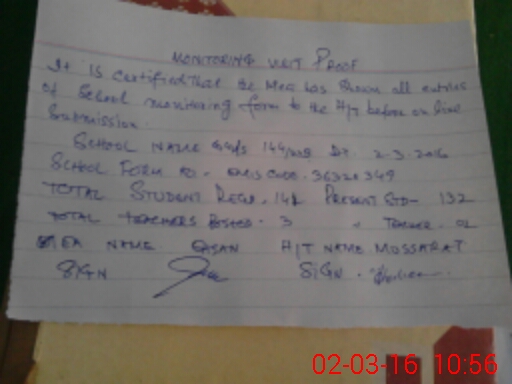 MONITORING VISIT PROOF
It is certified that the Mea has shown all entries
of School monitoring form to the H/T before on line
Submission.
SCHOOL NAME GGPS 144/ DT. 2-3-2016
SCHOOL FORM NO - EMIS CODE. 36320349
TOTAL STUDENT REGD. 141 PRESENT STD- 132
TOTAL TEACHERS POSTED - 3 " TEACHER. 02
MEA NAME HASAN H/T NAME MOSSARAT
SIGN SIGN.
02-03-16 10:56